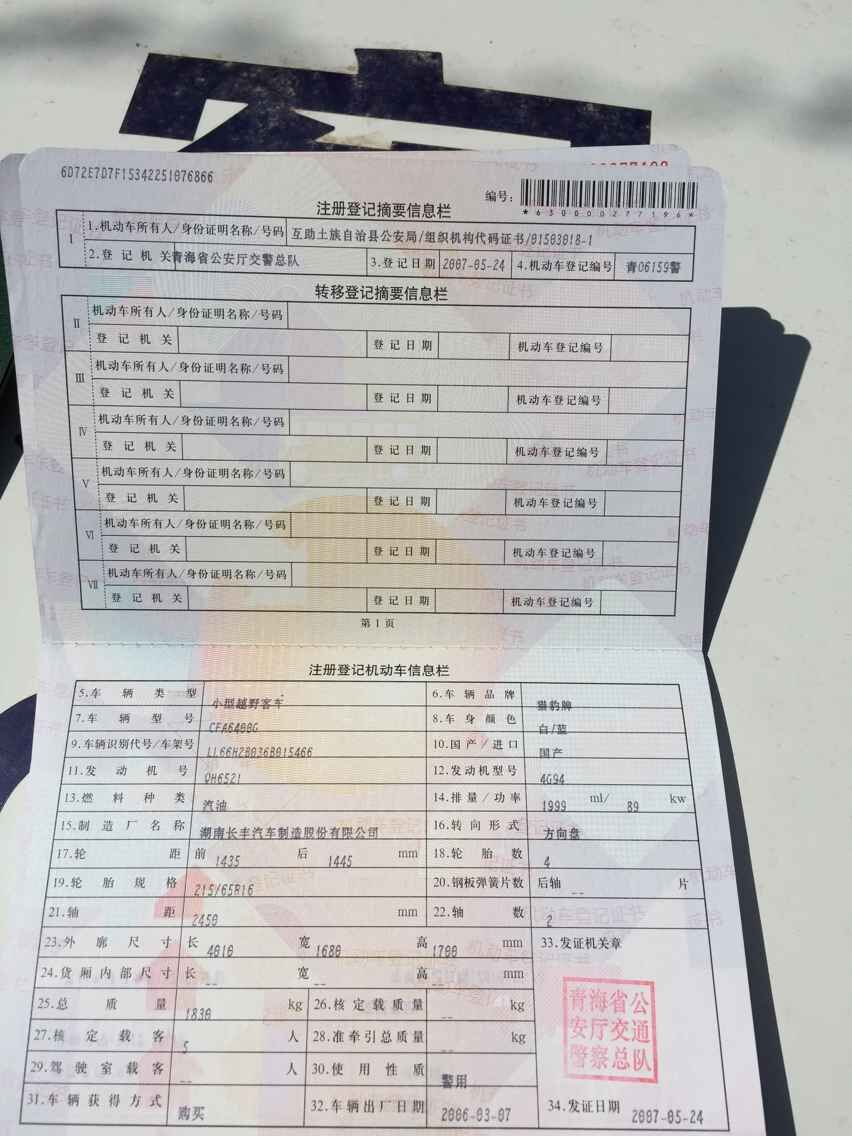 6D72E7D7F15342251076866
编号:
*630000277196*
注册登记摘要信息栏
Ⅰ 1.机动车所有人/身份证明名称/号码 互助土族自治县公安局/组织机构代码证书/01503018-1
2.登记机关 青海省公安厅交警总队 3.登记日期 2007-05-24 4.机动车登记编号 青O6159警
转移登记摘要信息栏
Ⅱ 机动车所有人/身份证明名称/号码
登记机关 登记日期 机动车登记编号
Ⅲ 机动车所有人/身份证明名称/号码
登记机关 登记日期 机动车登记编号
Ⅳ 机动车所有人/身份证明名称/号码
登记机关 登记日期 机动车登记编号
Ⅴ 机动车所有人/身份证明名称/号码
登记机关 登记日期 机动车登记编号
Ⅵ 机动车所有人/身份证明名称/号码
登记机关 登记日期 机动车登记编号
Ⅶ 机动车所有人/身份证明名称/号码
登记机关 登记日期 机动车登记编号
第1页
注册登记机动车信息栏
5.车辆类型 小型越野客车 6.车辆品牌 猎豹牌
7.车辆型号 CFA6400G 8.车身颜色 白/蓝
9.车辆识别代号/车架号 LL66H2B036B015466 10.国产/进口 国产
11.发动机号 QH6521 12.发动机型号 4G94
13.燃料种类 汽油 14.排量/功率 1999 ml/ 89 kw
15.制造厂名称 湖南长丰汽车制造股份有限公司 16.转向形式 方向盘
17.轮距 前 1435 后 1445 mm 18.轮胎数 4
19.轮胎规格 215/65R16 20.钢板弹簧片数 后轴 -- 片
21.轴距 2450 mm 22.轴数 2
23.外廓尺寸 长 4010 宽 1680 高 1700 mm 33.发证机关章
24.货厢内部尺寸 长 -- 宽 -- 高 -- mm
25.总质量 1830 kg 26.核定载质量 -- kg
27.核定载客 5 人 28.准牵引总质量 -- kg
29.驾驶室载客 -- 人 30.使用性质 警用
青海省公
安厅交通
警察总队
31.车辆获得方式 购买 32.车辆出厂日期 2006-03-07 34.发证日期 2007-05-24